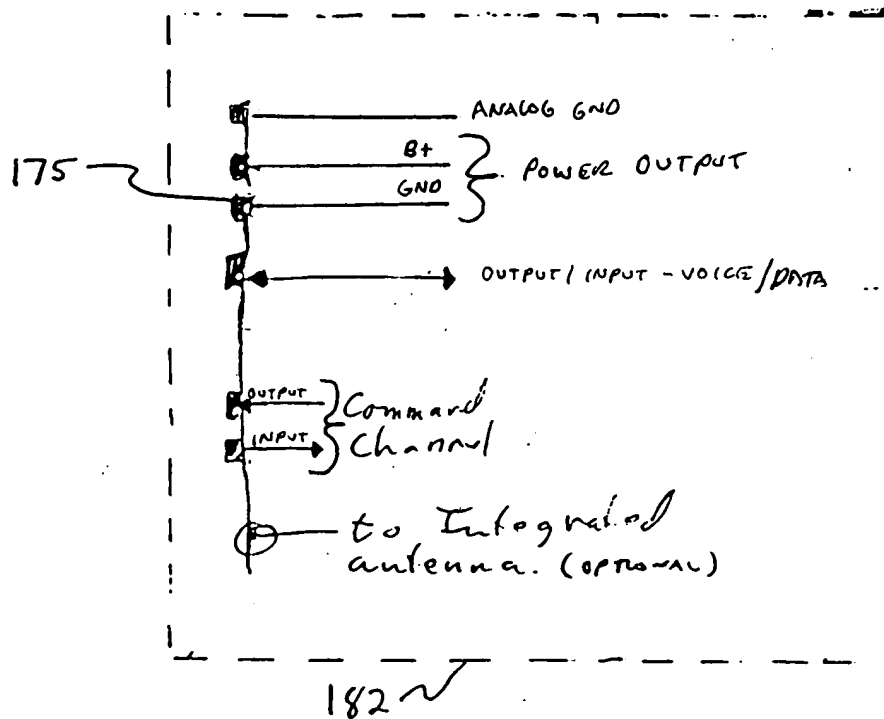 ANALOG GND
B+
175
POWER OUTPUT
GND
OUTPUT/INPUT - VOICE/DATA
OUTPUT
Command
INPUT
Channel
to Integrated
antenna. (OPTIONAL)
182